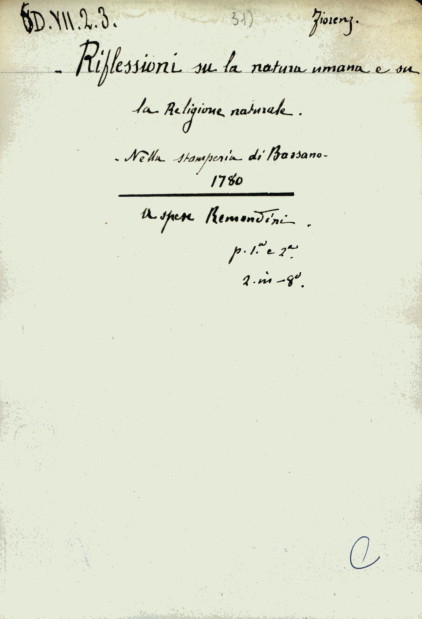 D.VII.2.3. 31) Fiorenz.
- Riflessioni su la natura umana e su
la Religione naturale.
- Nella stamperia di Bassano -
1780
a spese Remondini.
p. 1.ª e 2ª.
2. in - 8º.